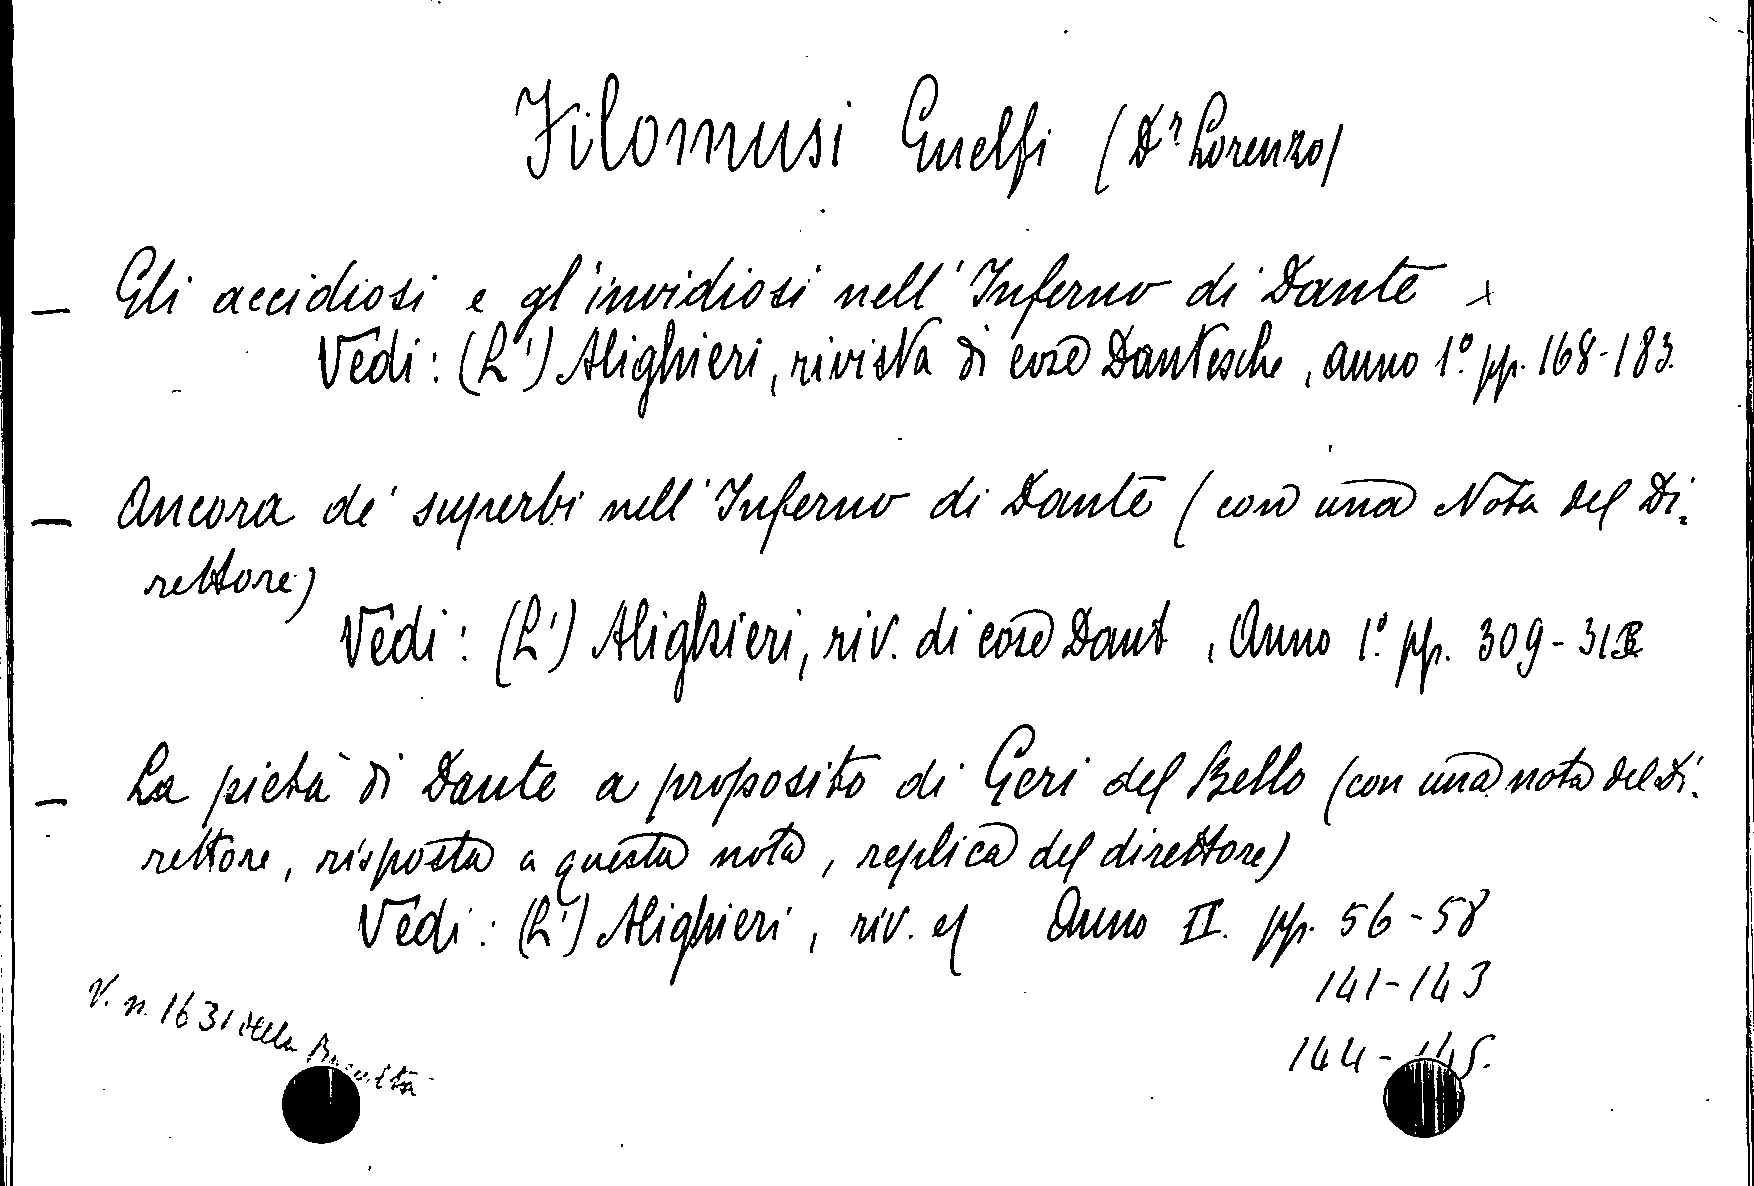 Filomusi Guelfi (Dr Lorenzo)
— Gli accidiosi e gl'invidiosi nell'Inferno di Dante x
Vedi: (L') Alighieri, rivista di cose Dantesche, anno 1º pp. 168-183.
— Ancora de' superbi nell'Inferno di Dante (con una Nota del Di-
rettore)
Vedi: (L') Alighieri, riv. di cose Dant , Anno 1º pp. 309-
— La pietà di Dante a proposito di Geri del Bello (con una nota del Di-
rettore, risposta a questa nota, replica del direttore)
Vedi: (L') Alighieri, riv. Anno II. pp. 56-58
141-143
144-145.
V. n. 1631 della